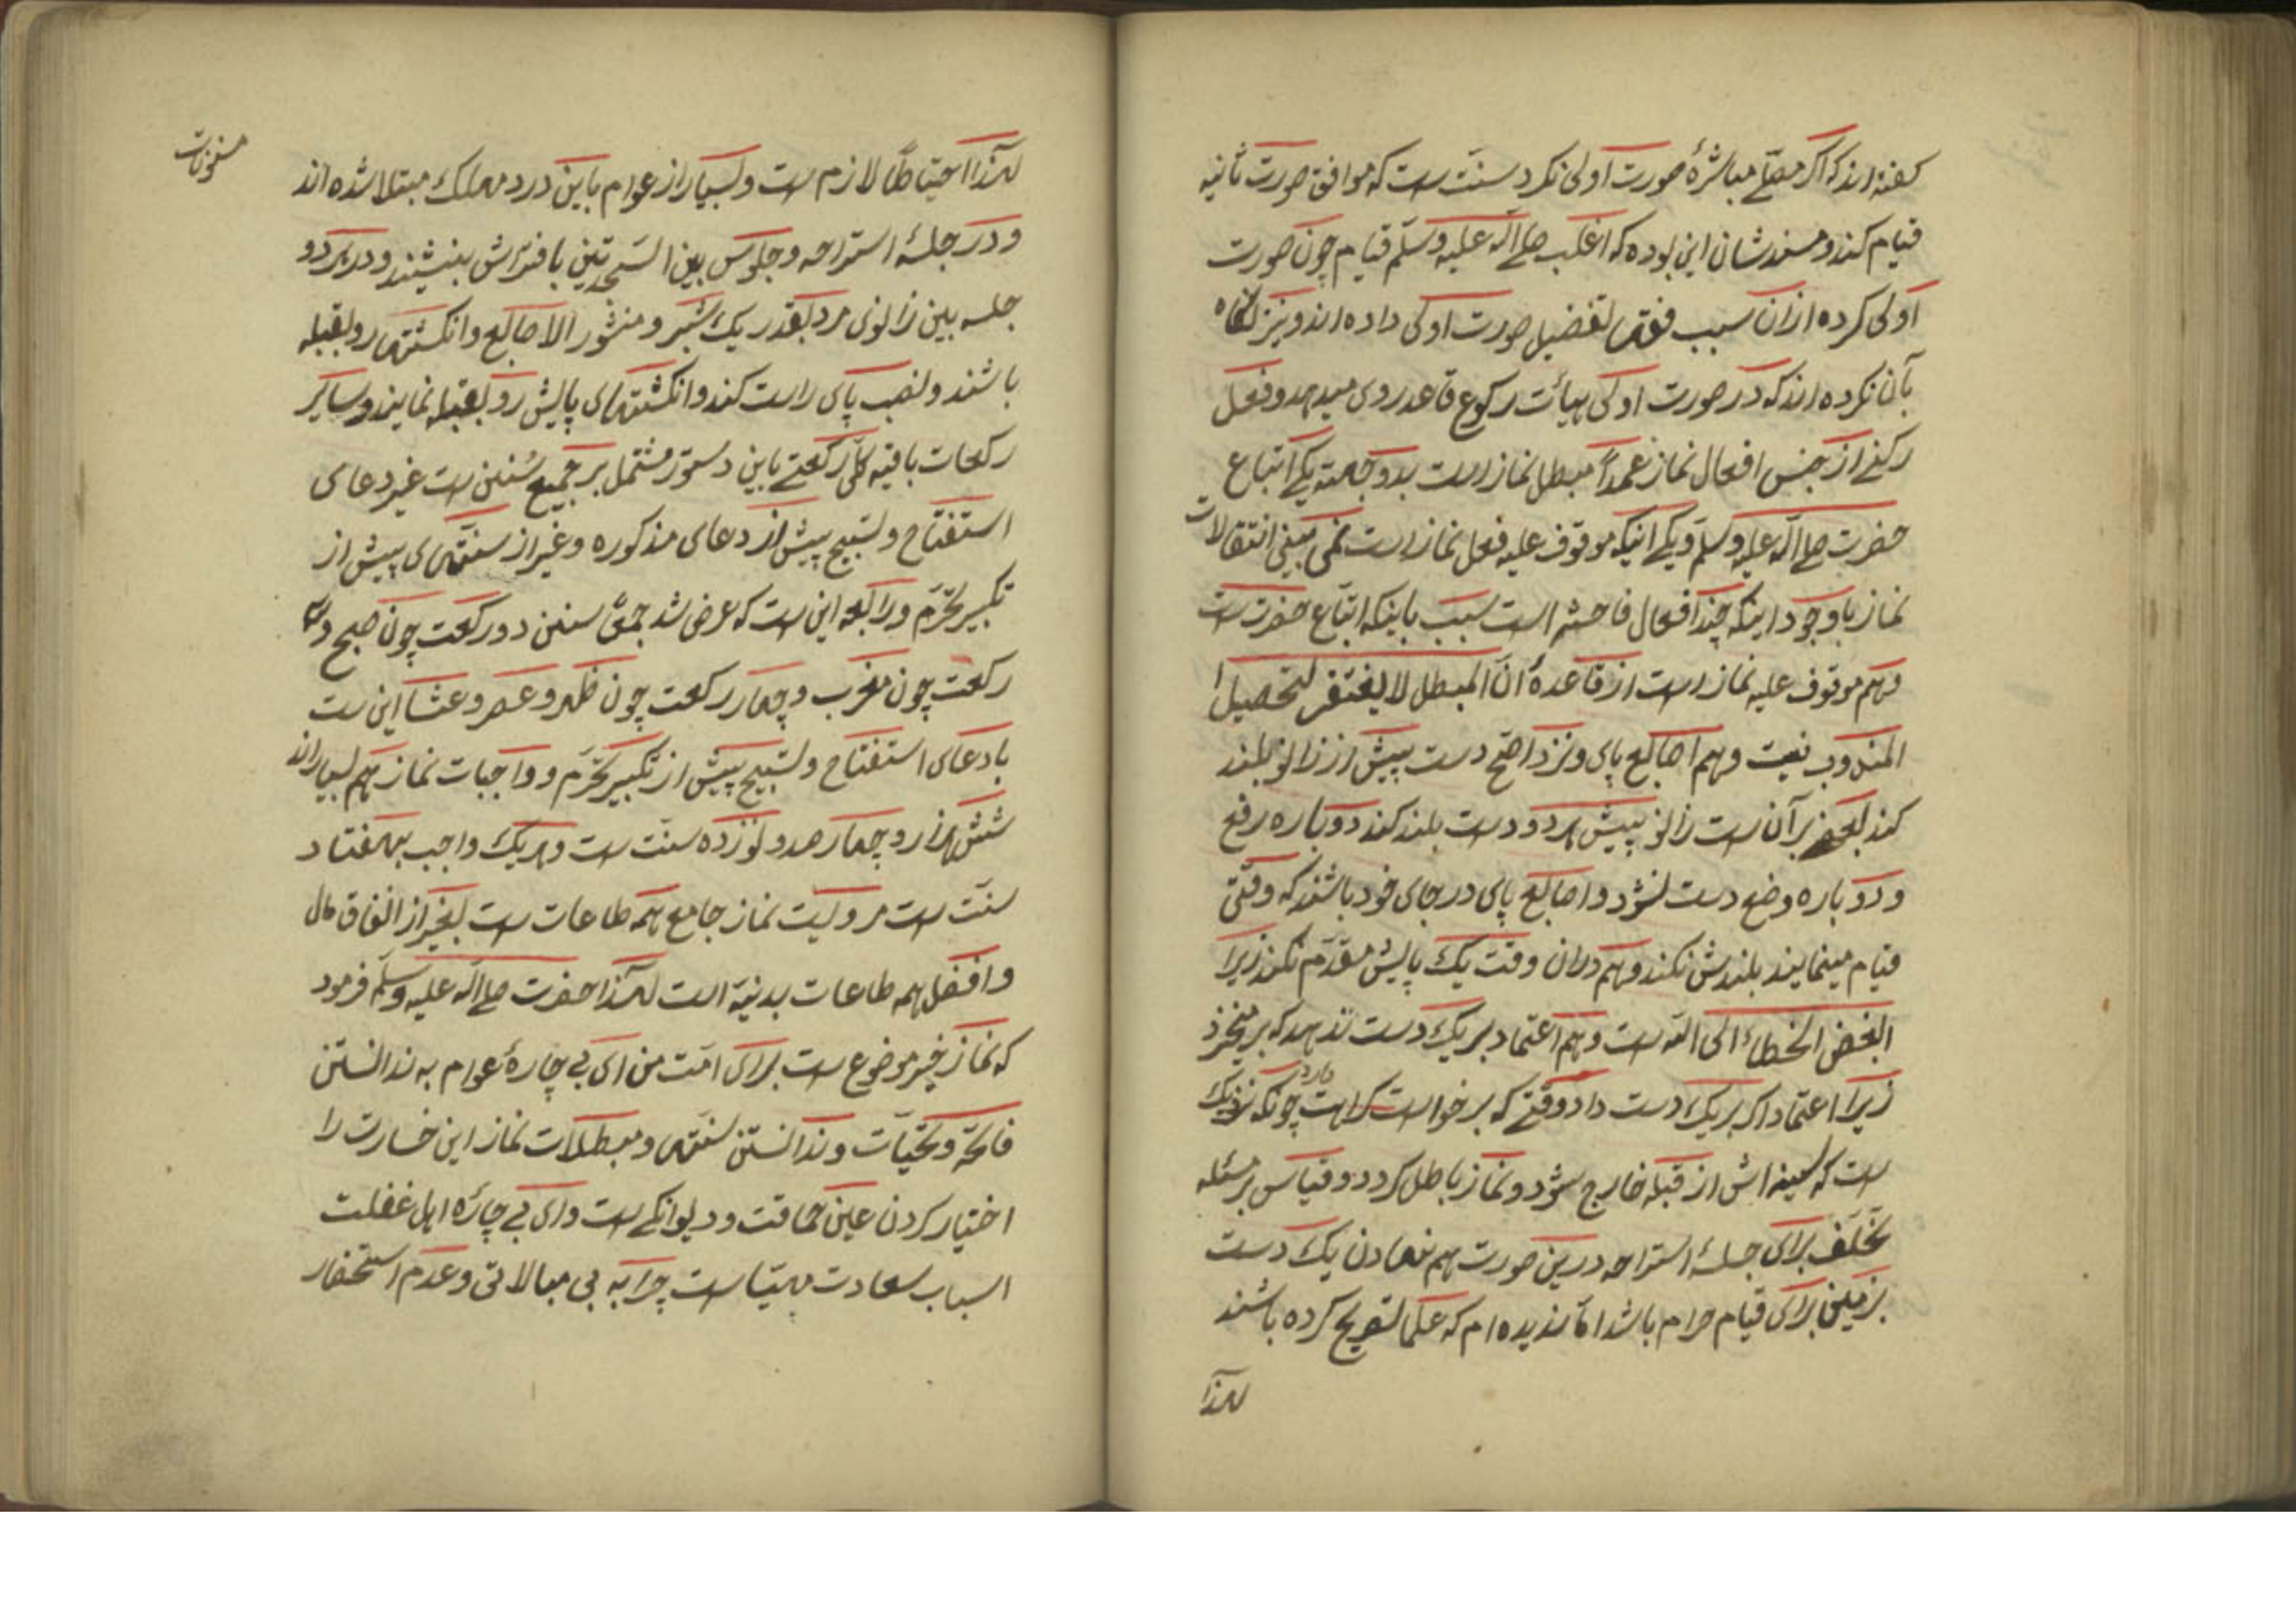 گفته‌اند که اگر مصلّی مباشرهٔ صورت اولی نکرد سنّت است که موافق صورت ثانیه
قیام کند و مسندشان این بوده که اغلب صلی الله علیه وسلّم قیام چون صورت
اولی کرده از ان سبب فقها تفضیل صورت اولی داده‌اند و نیز نگاه
بآن نکرده‌اند که در صورت اولی هیأت رکوع قاعد روی میدهد و فعل
رکنی از جنس افعال نماز عمداً مبطل نماز است بدو جهته یکی اتباع
حضرت صلی الله علیه وسلّم و یکی اینکه موقوف علیه فعل نماز است نمی بینی انتقالات
نماز با وجود اینکه چند افعال فاحشه است سبب باینکه اتباع حضرت است
و هم موقوف علیه نماز است از قاعدهٔ انّ المبطل لا یغتفر لتحصیل
المندوب نیست و هم اصابع پای و نزد اصح دست پیش از زانو بلند
کند بعضی برآن است زانو پیش هر دو دست بلند کند دوباره رفع
و دوباره وضع دست نشود و اصابع پای در جای خود باشند که وقتی
قیام مینمایند بلندش نکند و هم دران وقت یک پایش مقدّم نکند زیرا
ابغض الخطاء الی الله است و هم اعتماد بر یک دست ندهد که برمیخیزد
زیرا اعتماد اگر بر یک دست داد وقتی که برخواست کراهت دارد چونکه نزدیک
است که سینه‌اش از قبله خارج شود و نماز باطل گردد و قیاس بر مسئله
تخلّف برای جلسهٔ استراحه درین صورت هم نهادن یک دست
بزمین برای قیام حرام باشد امّا ندیده‌ام که علما تصریح کرده باشند
لهذا
لهذا احتیاطاً لازم است و بسیار از عوام باین درد مهلک مبتلا شده‌اند
و در جلسهٔ استراحه و جلوس بین السّجدتین بافتراش بنیشند و در هر دو
جلسه بین زانوی مرد بقدر یک شبر و منشور الاصابع و انگشتها رو بقبله
باشند و نصب پای راست کند و انگشتهای پایش رو بقبله نمایند و سایر
رکعات باقیه کلّ رکعتی باین دستور مشتمل بر جمیع سُنن است غیر دعای
استفتاح و تسبیح پیش از دعای مذکوره و غیر از سنّتهای پیش از
تکبیر تحرّم و رابعه این است که عرض شد جمیع سنن دو رکعت چون صبح و سه
رکعت چون مغرب و چهار رکعت چون ظهر و عصر و عشا این است
با دعای استفتاح و تسبیح پیش از تکبیر تحرّم و واجبات نماز هم بسیاراند
شش هزار و چهار صد و نوزده سنّت است و هر یک واجب بهفتاد
سنّت است مرویست نماز جامع همه طاعات است بغیر از انفاق مال
و افضل همه طاعات بدنیّه است لهذا حضرت صلی الله علیه وسلّم فرمود
که نماز خیر موضوع است برای امّت من ای بی چارهٔ عوام به ندانستن
فاتحة و تحیّات و ندانستن سنّتها و مبطلات نماز این خسارت را
اختیار کردن عین حماقت و دیوانگی است وای بی چاره اهل غفلت
اسباب سعادت مهیّا است چرا به بی مبالاتی و عدم استحضار